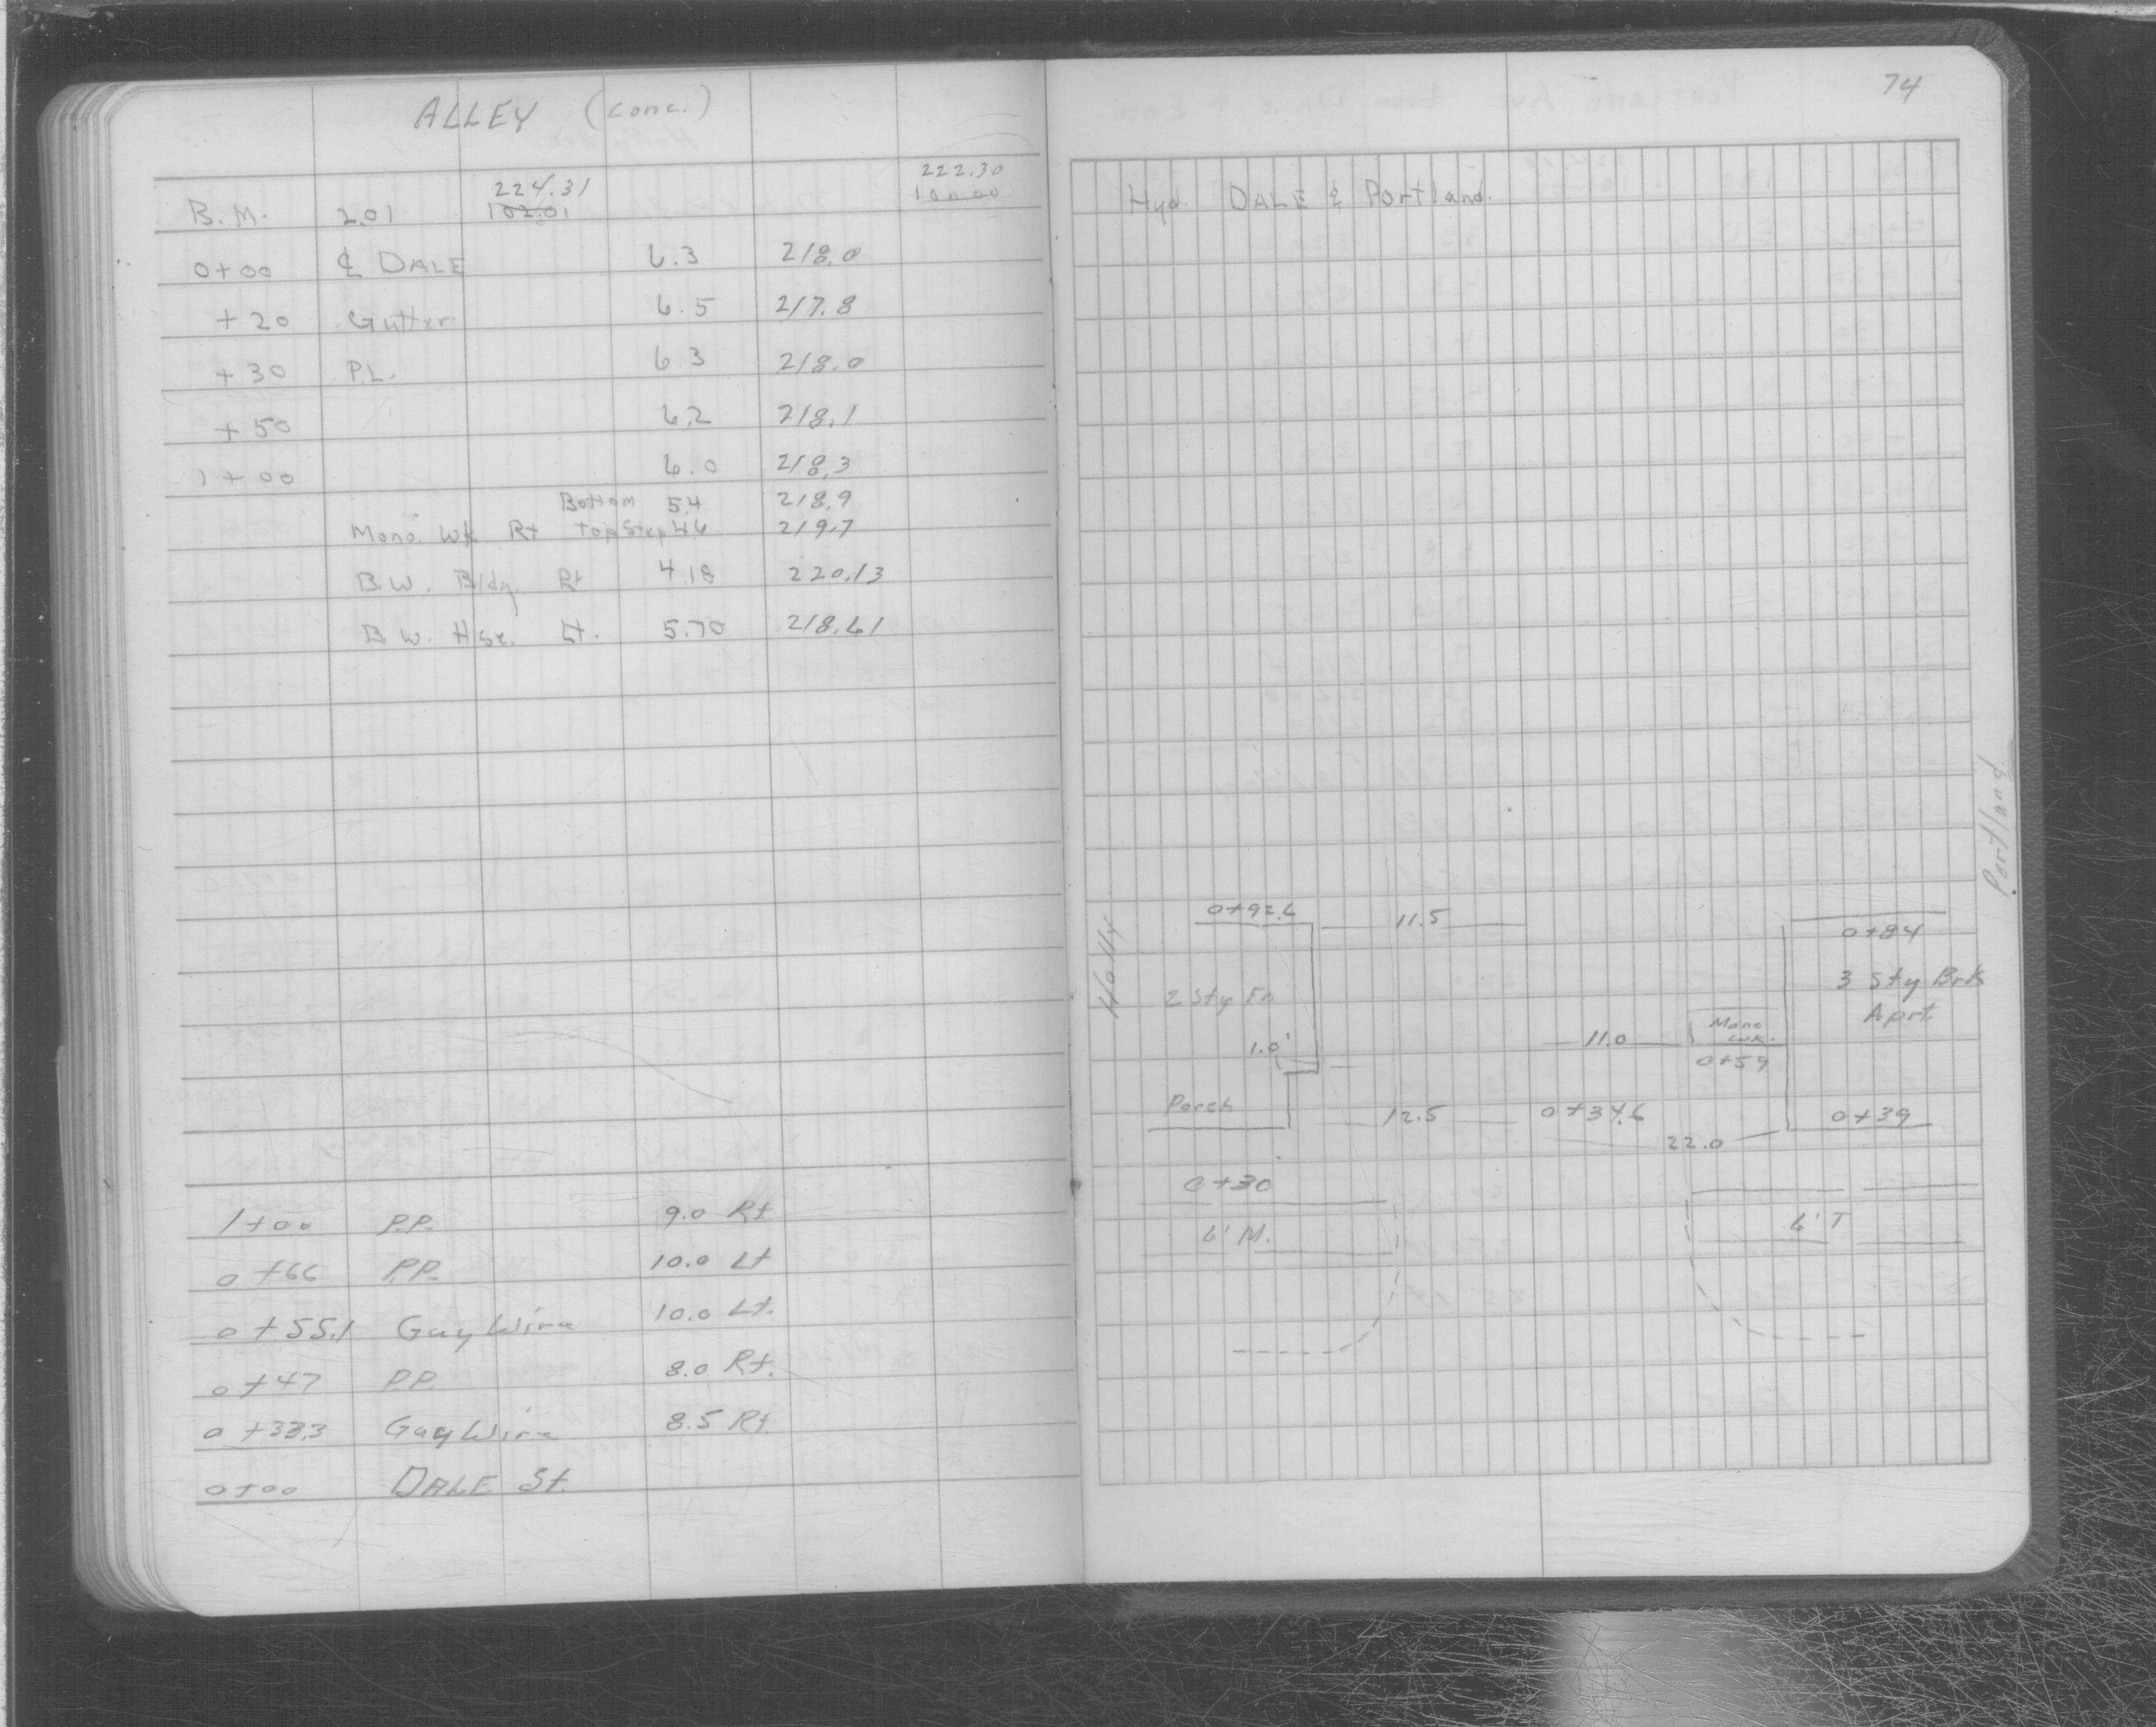 ALLEY (Conc.)
224.31 222.30
B.M. 2.01 102.01 100.00
0+00 ℄ DALE 6.3 218.0
+20 Gutter 6.5 217.8
+30 P.L. 6.3 218.0
+50 6.2 218.1
1+00 6.0 218.3
Bottom 5.4 218.9
Mono. Wk Rt Top Step 4.6 219.7
B.W. Bldg. Rt 4.18 220.13
B.W. Hse. Lt. 5.70 218.61
1+00 P.P. 9.0 Rt
0+66 P.P. 10.0 Lt
0+55.1 Guy Wire 10.0 Lt.
0+47 P.P. 8.0 Rt.
0+33.3 Guy Wire 8.5 Rt.
0+00 DALE St.
74
Hyd. DALE & Portland.
Portland
Holly
0+92.6 11.5 0+84
2 Sty Fr. 3 Sty Brk
Aprt.
1.0' 11.0 Mono
Wk.
0+59
Porch 12.5 0+34.6 0+39
22.0
0+30
6' M. 6' T